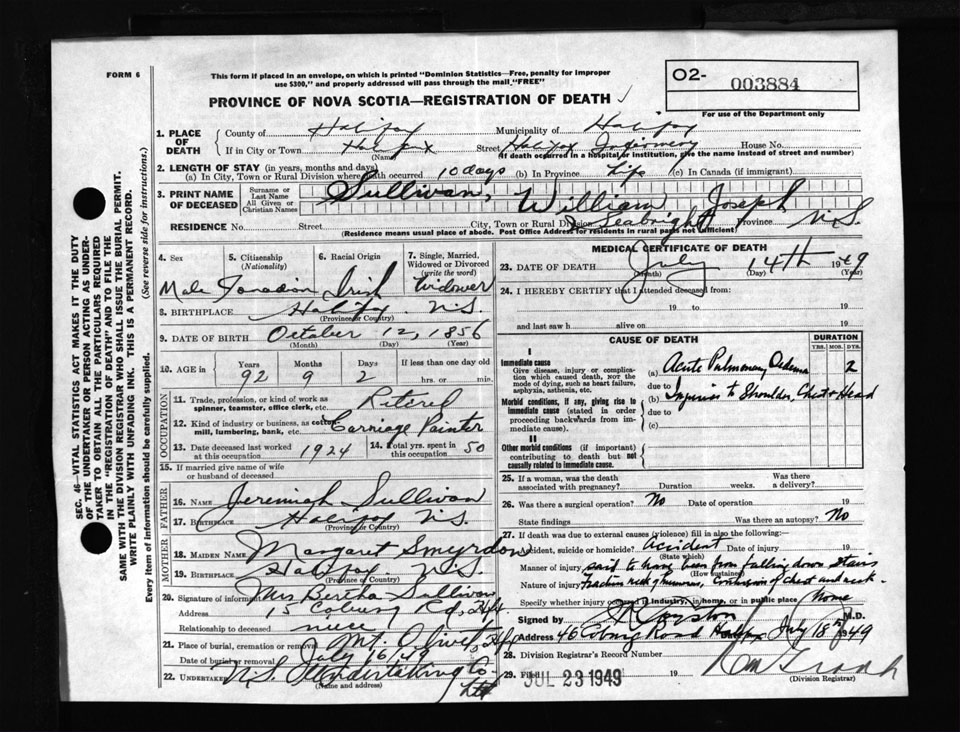 FORM 6
This form if placed in an envelope, on which is printed "Dominion Statistics—Free, penalty for improper
use $300," and properly addressed will pass through the mail "FREE"
O2- 003884
For use of the Department only
PROVINCE OF NOVA SCOTIA—REGISTRATION OF DEATH
1. PLACE OF DEATH
County of Halifax Municipality of Halifax
If in City or Town Halifax Street Halifax Infirmary House No.
(Name) (If death occurred in a hospital or institution, give the name instead of street and number)
2. LENGTH OF STAY (in years, months and days)
(a) In City, Town or Rural Division where death occurred 10 days (b) In Province Life (c) In Canada (if immigrant)
3. PRINT NAME OF DECEASED
Surname or Last Name
All Given or Christian Names
Sullivan, William Joseph
RESIDENCE No. Street City, Town or Rural Division Seabright Province N.S.
(Residence means usual place of abode. Post Office Address for residents in rural parts not sufficient)
4. Sex
Male
5. Citizenship
(Nationality)
Canadian
6. Racial Origin
Irish
7. Single, Married, Widowed or Divorced
(write the word)
Widower
8. BIRTHPLACE Halifax N.S.
(Province or Country)
9. DATE OF BIRTH October 12, 1856
(Month) (Day) (Year)
10. AGE in Years Months Days If less than one day old
92 9 2 hrs. or min.
OCCUPATION
11. Trade, profession, or kind of work as
spinner, teamster, office clerk, etc. Retired
12. Kind of industry or business, as cotton
mill, lumbering, bank, etc. Carriage Painter
13. Date deceased last worked
at this occupation 1924
14. Total yrs. spent in
this occupation 50
15. If married give name of wife
or husband of deceased
FATHER
16. NAME Jeremiah Sullivan
17. BIRTHPLACE Halifax N.S.
(Province or Country)
MOTHER
18. MAIDEN NAME Margaret
19. BIRTHPLACE Halifax N.S.
(Province or Country)
20. Signature of informant Mrs Bertha Sullivan
Address 15 Coburg Rd., Hfx
Relationship to deceased niece
21. Place of burial, cremation or removal Mt. Olivet, Hfx
Date of burial or removal July 16/49
22. UNDERTAKER N.S. Undertaking Co Ltd
(Name and address)
MEDICAL CERTIFICATE OF DEATH
23. DATE OF DEATH July 14th 1949
(Month) (Day) (Year)
24. I HEREBY CERTIFY that I attended deceased from
19 to 19
and last saw h alive on 19
CAUSE OF DEATH
DURATION
YRS. MOS. DYS.
I
Immediate cause
Give disease, injury or complication which caused death, NOT the mode of dying, such as heart failure, asphyxia, asthenia, etc.
(a) Acute Pulmonary Oedema 2
due to
Morbid conditions, if any, giving rise to immediate cause (stated in order proceeding backwards from immediate cause).
(b) Injuries to Shoulder, Chest & Head
due to
(c)
II
Other morbid conditions (if important) contributing to death but not causally related to immediate cause.
25. If a woman, was the death
associated with pregnancy? Duration weeks. Was there
a delivery?
26. Was there a surgical operation? No Date of operation 19
State findings Was there an autopsy? No
27. If death was due to external causes (violence) fill in also the following:
Accident, suicide or homicide? Accident Date of injury 19
(State which)
Manner of injury said to have been from falling down stairs
(How sustained)
Nature of injury fracture neck of humerus, contusion of chest and neck.
Specify whether injury occurred in industry, in home, or in public place Home
Signed by M.D.
Address 46 Coburg Road Halifax July 18 1949
28. Division Registrar's Record Number
29. Filed JUL 23 1949
(Division Registrar)
SEC. 46—VITAL STATISTICS ACT MAKES IT THE DUTY
OF THE UNDERTAKER OR PERSON ACTING AS UNDER-
TAKER TO OBTAIN ALL THE PARTICULARS REQUIRED
IN THE "REGISTRATION OF DEATH" AND TO FILE THE
SAME WITH THE DIVISION REGISTRAR WHO SHALL ISSUE THE BURIAL PERMIT.
WRITE PLAINLY WITH UNFADING INK. THIS IS A PERMANENT RECORD.
Every item of information should be carefully supplied. (See reverse side for instructions.)